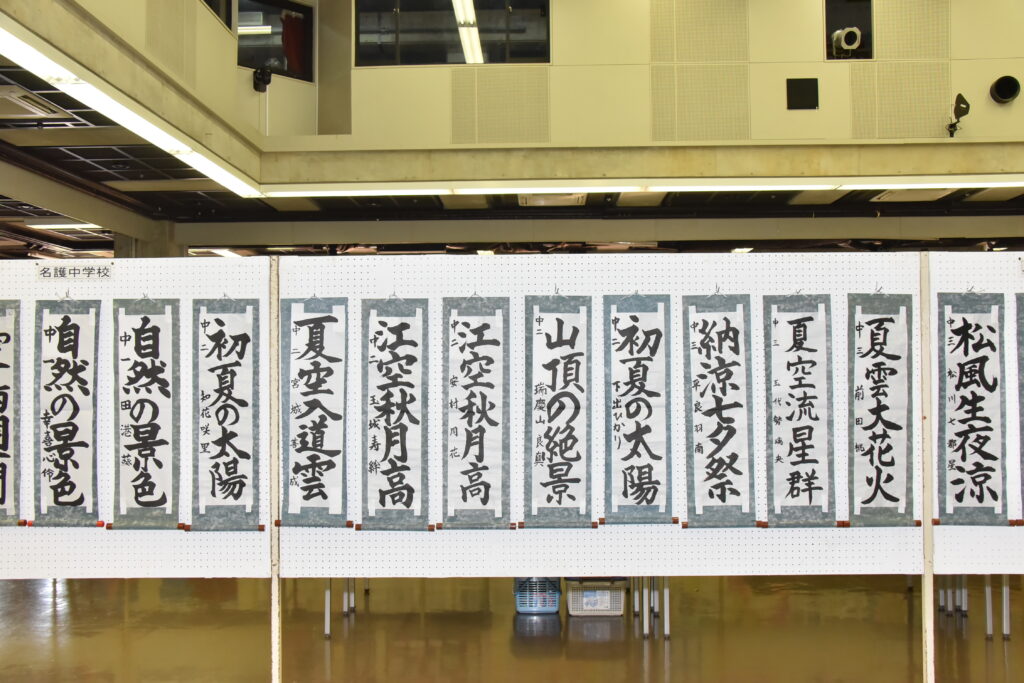 名護中学校
自然の景色
中一
幸喜心伶
自然の景色
中一
田港
初夏の太陽
中二
知花咲里
夏空入道雲
中二
宮城
成
江空秋月高
中二
玉城寿絆
江空秋月高
中二
安村月花
山頂の絶景
中二
瑞慶山良興
初夏の太陽
中二
下出ひかり
納涼七夕祭
中三
平良羽南
夏空流星群
中三
玉代勢璃央
夏雲大花火
中三
前田桃
松風生夜涼
中三
松川七都星